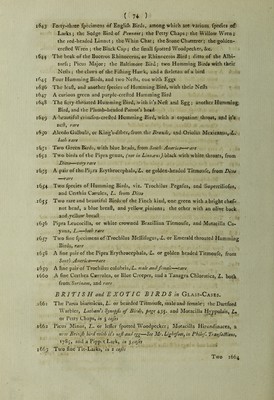 ( 74 )
1643 Forty-three specimens of English Birds, among which are various species of
Larks; the Sedge Bird of Pennant; the Petty Chaps; the Willow Wren;
the red-headed Linnet; the Whin Chat; the Stone Chatterer; the golden-
crested Wren; the Black Cap; the small spotted Woodpecker, &c.
1644 The beak of the Buceros Rhinoceros, or Rhinoceros Bird; ditto of the Alba-
tross; Picus Major; the Baltimore Bird; two Humming Birds with their
Nests; the claws of the Fishing Hawk, and a skeleton of a bird
1645 Four Humming Birds, and two Nests, one with Eggs
1646 The leaf, and another species of Humming Bird, with their Nests
1647 A curious green and purple-crested Humming Bird
1648 The fiery-throated Humming Bird, with it's Nest and Egg; another Humming
Bird, and the Plumb-headed Parrot's head
1649 A beautiful crimson-crested Humming Bird, with a expansive throat, and it's
nest, rare
1650 Alcedo Galbula, or King's-fisher, from the Brasils, and Oriolus Mexicanus, L.
both rare
1651 Two Green Birds, with blue heads, from South America—rare
1652 Two birds of the Pipra genus, (one
black with white throats, from
Ditto—very rare
1653 A pair of the Pipra Erythrocephala, L. or golden-headed Titmouse, from Ditto
—rare
1654 Two species of Humming Birds, viz. Trochilus Pegasus, and Superciliosus,
and Certhia Cærulea, L. from Ditto
1655 Two rare and beautiful Birds of the Finch kind, one green with a bright chest-
nut head, a blue breast, and yellow pinions; the other with an olive back
and yellow breast
1656 Pipra Leucocilla, or white crowned Brazillion Titmouse, and Motacilla Cy-
anea, L.—both rare
1657 Two fine specimens of Trochilus Mellisugus, L. or Emerald throated Humming
Birds, rare
1658 A fine pair of the Pipra Erythrocephala, L. or golden headed Titmouse, from
South America—rare
1659 A fine pair of Trochilus mellisuga, L. male and female—rare
1660 A fine Certhea Cærulea, or Blue Creeper, and a Tanagra Chlorotica, L. both
from Surinam, and rare
BRITISH and EXOTIC BIRDS in GLASS-CASES.
1661 The Parus biarmicus, L. or bearded Titmouse, male and female; the Dartford
Warbler, Latham's Synopsis of Birds, page 435. and Motacilla Hyppolais, L.
or Petty Chaps, in 3 cases
1662 Picus Minor, L. or lesser spotted Woodpecker; Motacilla Hirundinacea, a
new British bird with it's nest and egg—See Mr. Lightfoot, in Philos. Transactions,
1785, and a Pippit Lark, in 3 cases
1663 Two fine Tit-Larks, in 2 cases
Two 1664